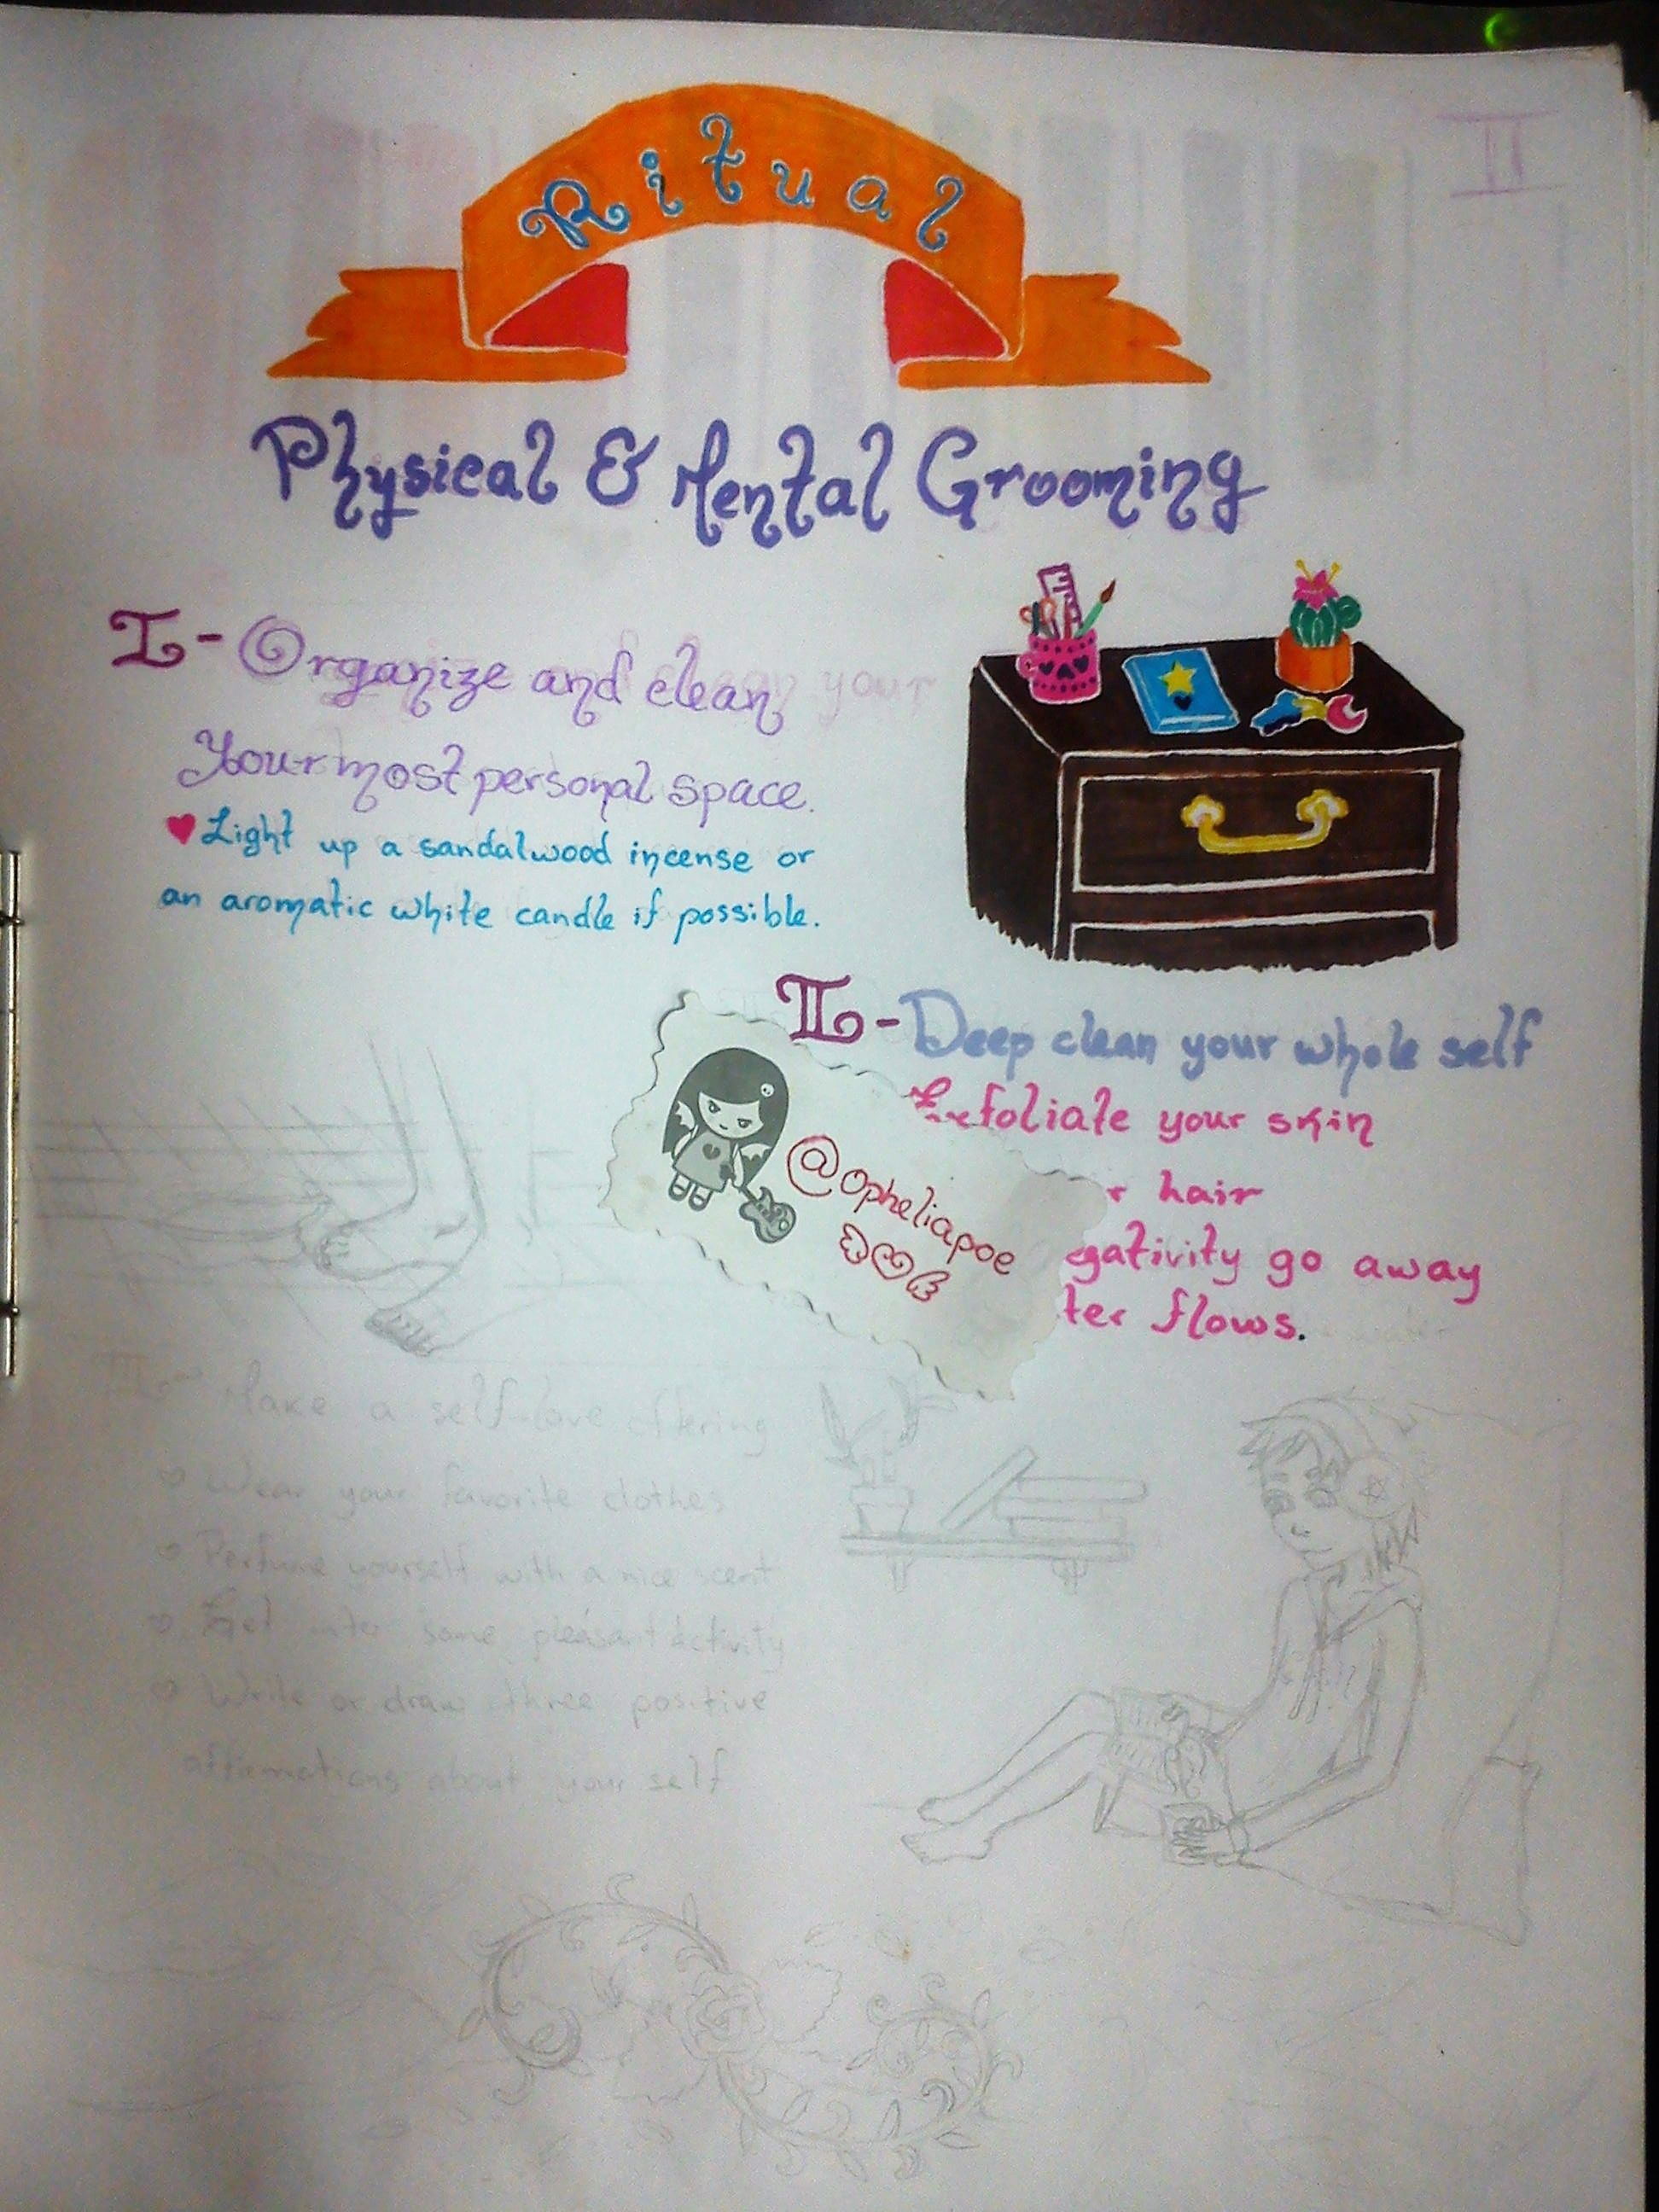 II
Ritual
Physical & Mental Grooming
I - Organize and clean
Your most personal space.
Light up a sandalwood incense or
an aromatic white candle if possible.
II - Deep clean your whole self
Exfoliate your skin
hair
go away
flows.
@opheliapoe
III - Make a self-love offering
Wear your favorite clothes
Perfume yourself with a nice scent
some pleasant activity
Write or draw three positive
affirmations about your self